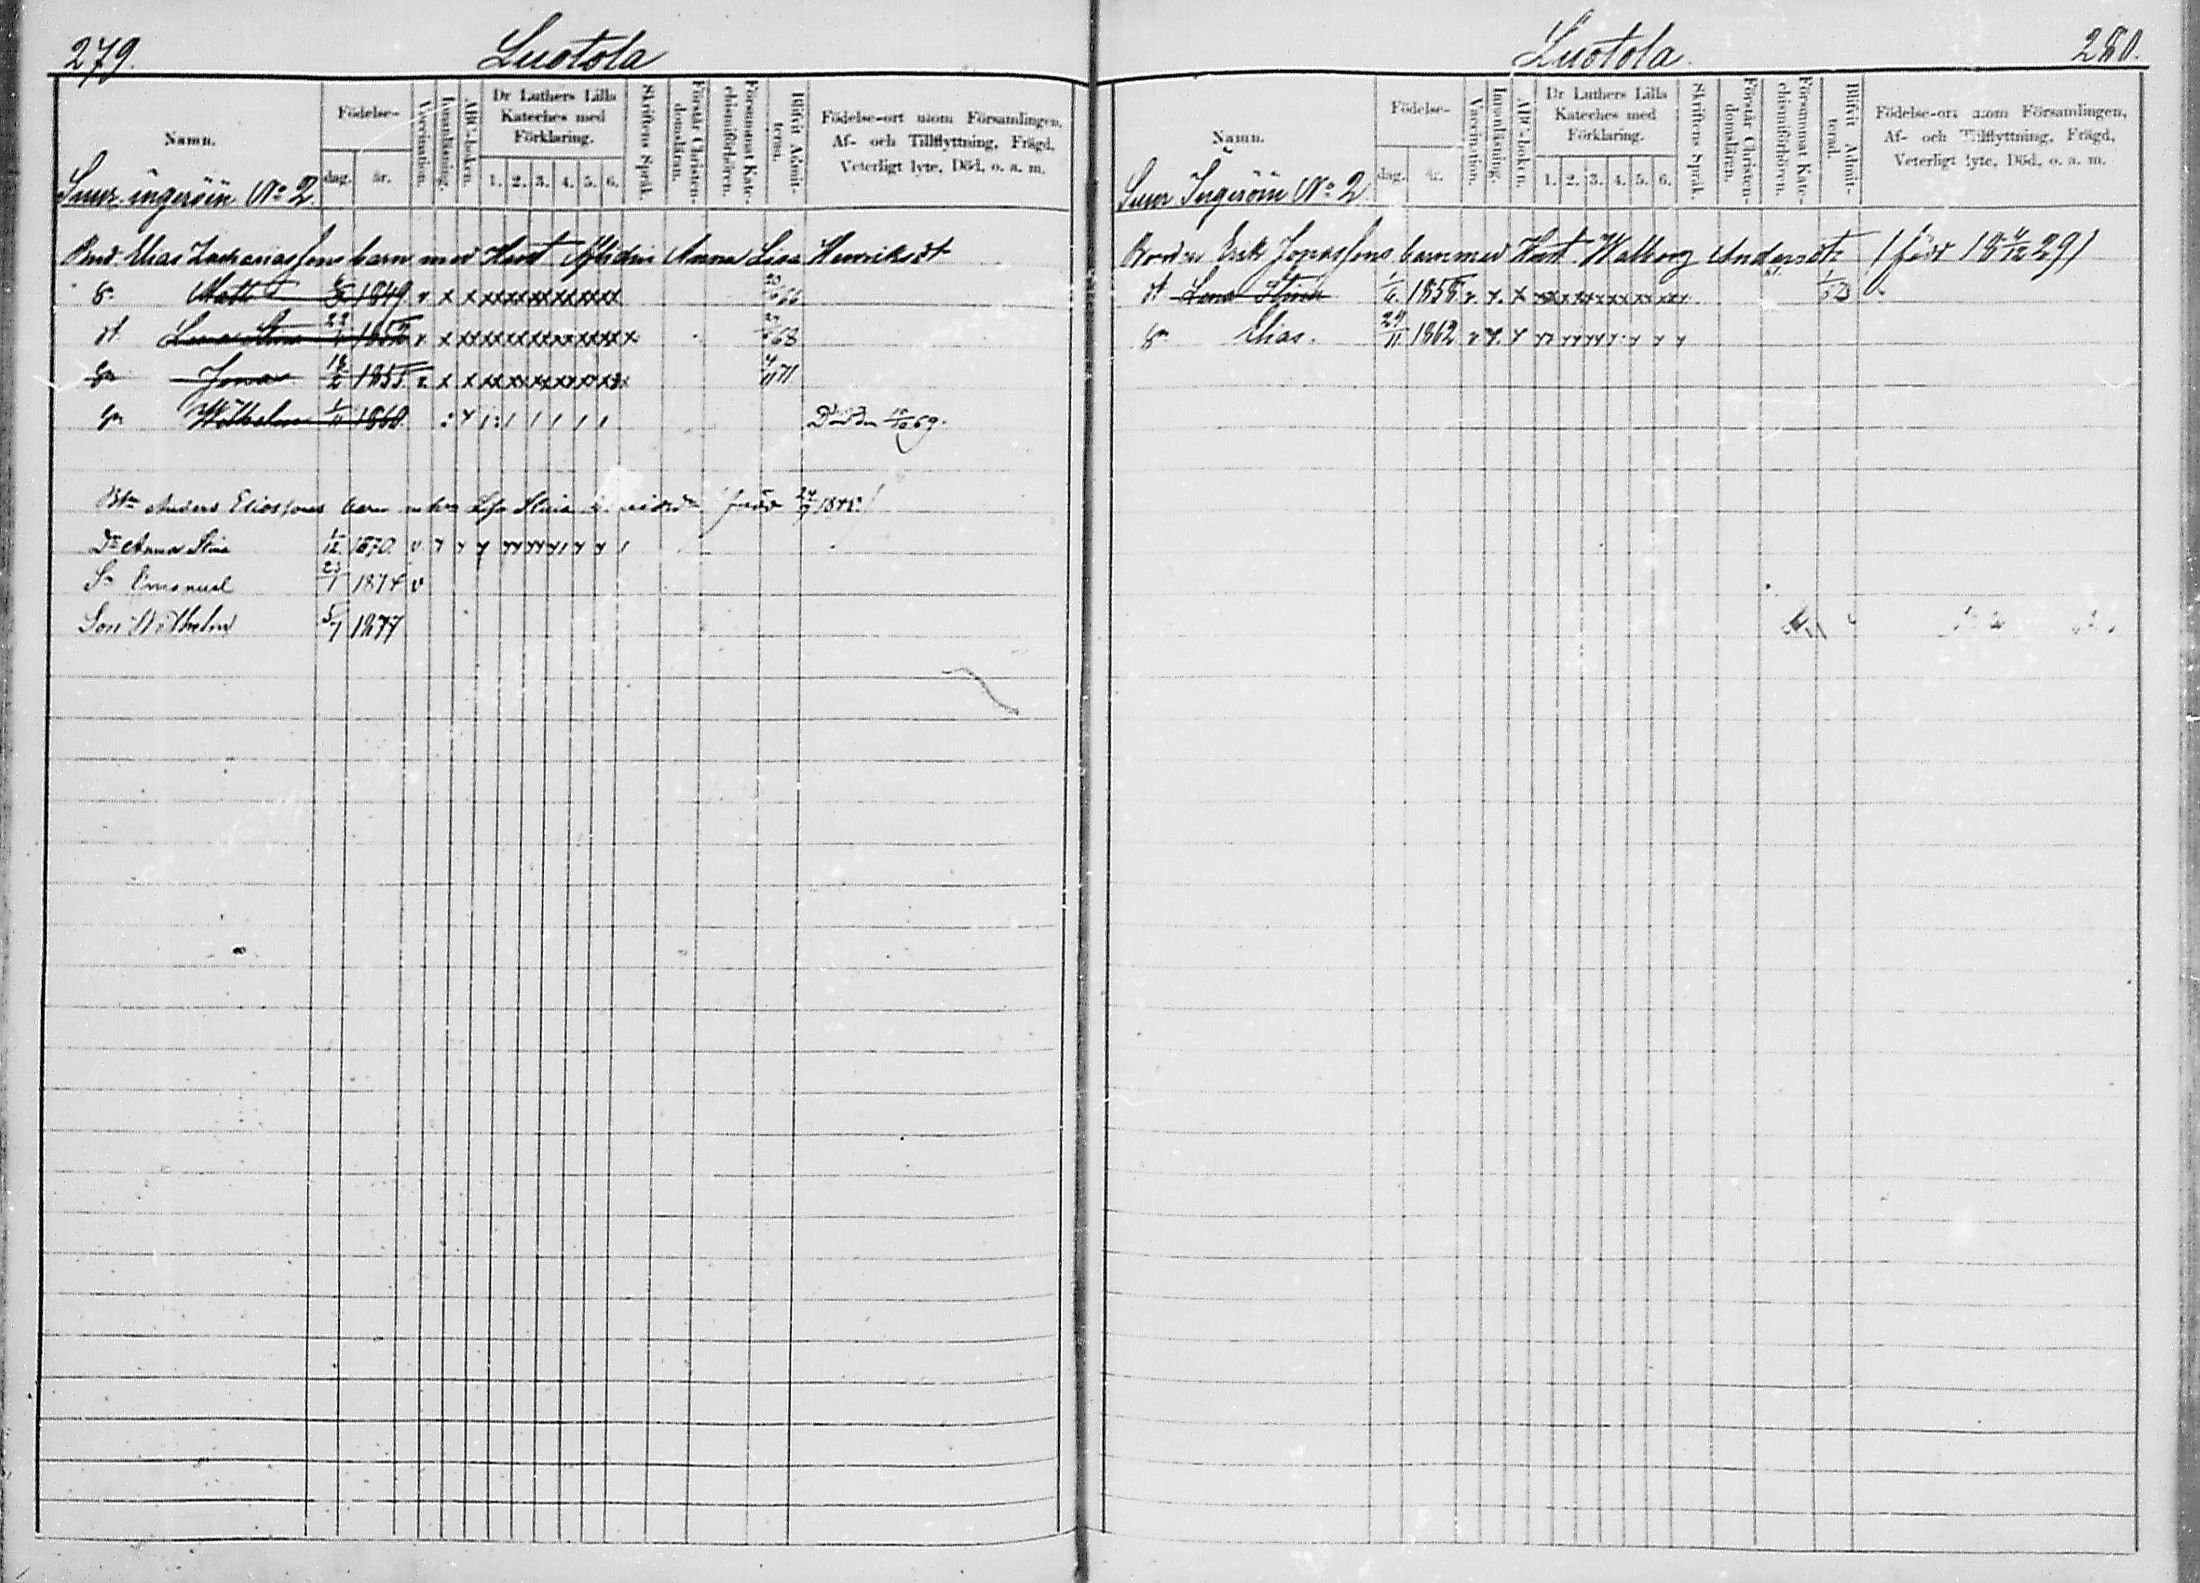 279. Luotola
Namn. Födelse- dag. år. Vaccination. Innanläsning. ABC-boken. Dr Luthers Lilla Kateches med Förklaring. 1. 2. 3. 4. 5. 6. Skriftens Språk. Förstår Christendomsläran. Försummat Katechismiförhören. Blifvit Admitteras. Födelse-ort utom Församlingen, Af- och Tillflyttning, Frägd, Veterligt lyte, Död, o. a. m.
Suur ingeröin No 2.
Bnd. Elias Zachariassons barn med Hust Anna Lisa Henriksdt
Sn Matts 1849 v x x xxxxxxxxxxxx 66
dt Lena Stina 1852 v x x xxxxxxxxxxxx x 68
Sn Jonas 18/2 1855 v x x xxxxxxxxxxxx 4/11 71
Sn Wilhelm 1/11 1860 Död den 69.
Anders Eliassons barn 1848
Dr Anna Stina 1/12 1870 v
Sn Emanuel 23/1 1874 v
Son Wilhelm 5/7 1877
Luotola. 280.
Namn. Födelse- dag. år. Vaccination. Innanläsning. ABC-boken. Dr Luthers Lilla Kateches med Förklaring. 1. 2. 3. 4. 5. 6. Skriftens Språk. Förstår Christendomsläran. Försummat Katechismiförhören. Blifvit Admitterad. Födelse-ort utom Församlingen, Af- och Tillflyttning, Frägd, Veterligt lyte, Död, o. a. m.
Suur Ingeröin No 2
Bonden Erik Jonassons barn med Hust. Walborg Andersdt (född 18 4/12 29)
dt Lena Stina 1/6 1858 v. x. x
Sn Elias. 29/11 1862